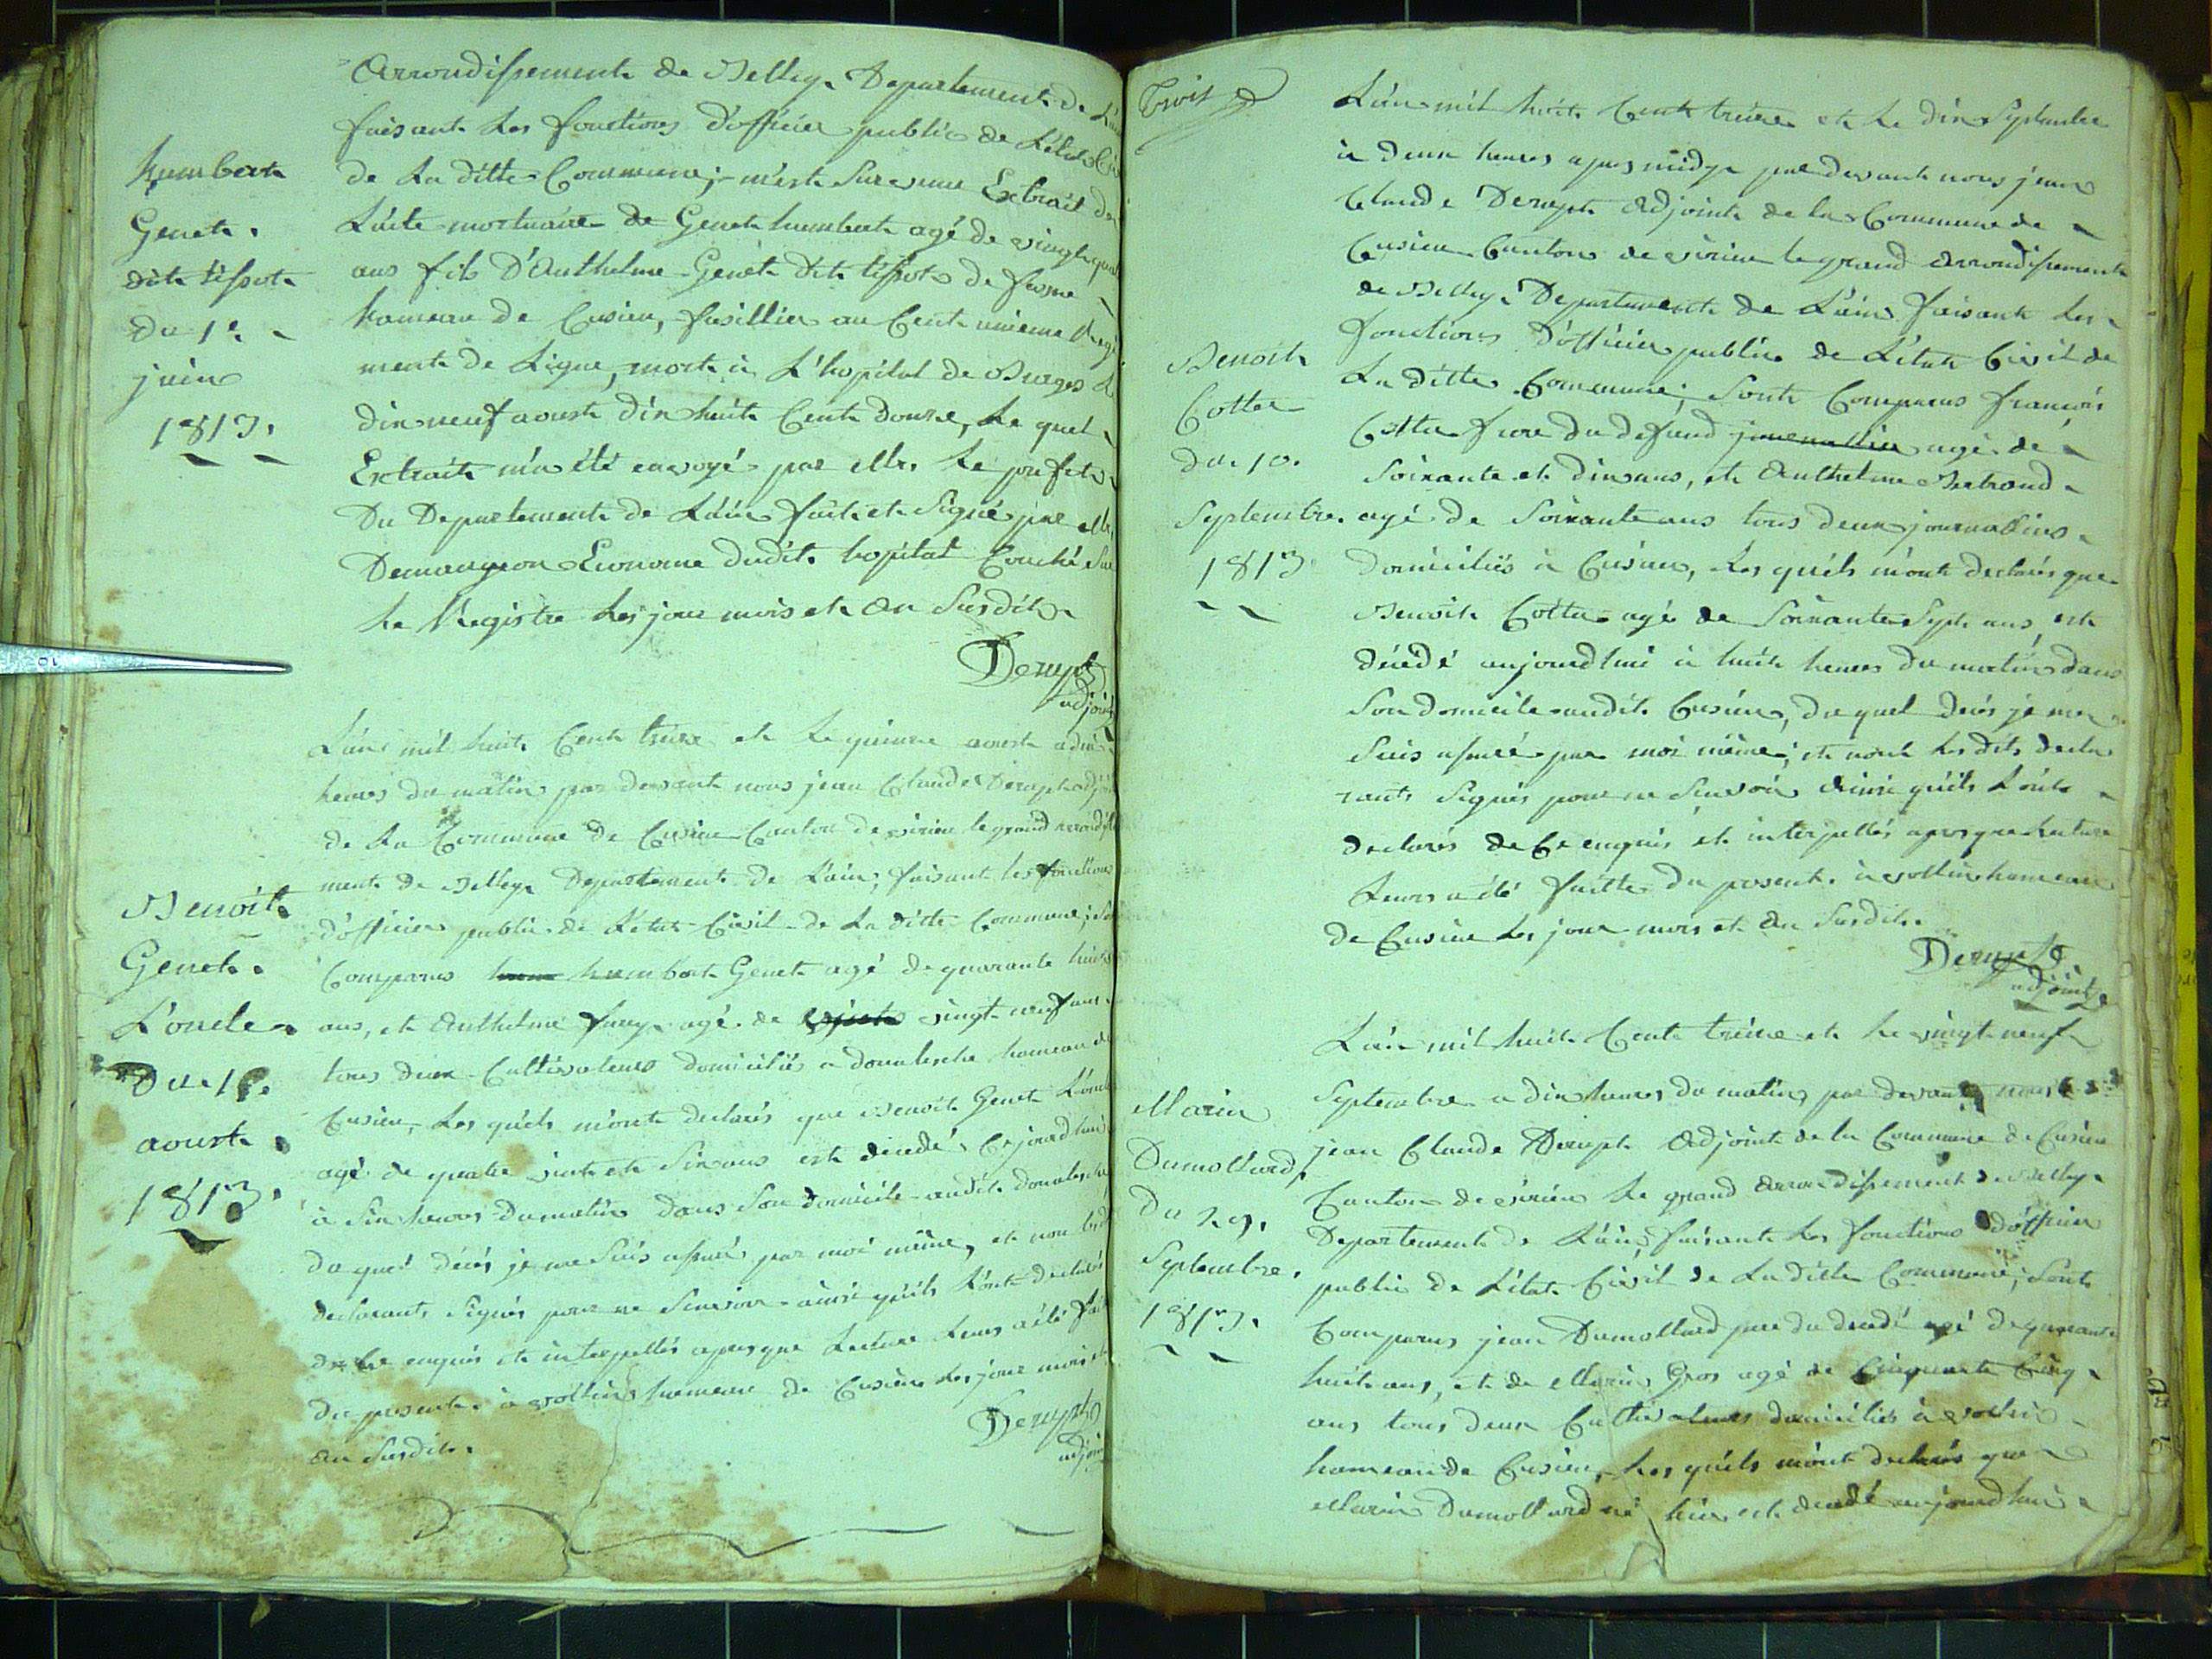 Arrondissement de Belley Departement de L'ain
faisant Les fonctions d'officier public de L'état Civil
de La ditte Commune; m'est Survenue Extrait de
L'acte mortuaire de Genet humbert agé de vingt quatre
ans fils D'Anthelme Genet dit tissot de
hameau de Cusieu, fusillier au Cent unieme Regi
ment de Ligne, mort à L'hopital de Burgos Le
dix neuf aoust dix huit Cent douze, Le quel
Extrait m'a été envoyé par Mr. Le prefet
Du Departement de L'ain fait et Signé par Mr.
Demangeon Econome dudit hopital Couché Sur
Le Registre Les jour mois et An Susdits
Derupt
adjoint
humbert
Genet.
dit tissot
du 1er
juin
1813.
L'an mil huit Cent treize et Le quinze aoust a dix
heures du matin par devant nous jean Claude Derupt adjoint
de La Commune de Cusieu Canton de virieu le grand arrondisse
ment de Belley Departement de L'ain, faisant les fonctions
d'officier public de L'état Civil de La ditte Commune; Sont
Comparus humbert Genet agé de quarante huit
ans, et Anthelme furey agé de vingt neuf ans
tous deux Cultivateurs domiciliés a hameau de
Cusieu, Les quels m'ont declarés que Benoit Genet L'oncle
agé de quatre vint et Six ans est décedé Cejourdhui
à Six heures du matin dans Son domicile audit
du quel décés je me Suis assuré par moi même, et non Lesdits
declarants Signés pour ne Scavoir ainsi quils L'ont declarés
de Ce enquis et interpellés apres que Lecture Leurs a été faitte
du present à vollin hameau de Cusieu Les jour mois et
An Susdits.
Derupt
adjoint
Benoit
Genet.
L'oncle
Du 15.
aoust.
1813.
Trois
L'an mil huit Cent treize et Le dix Septembre
à deux heures apres midy par devant nous jean
Claude Derupt Adjoint de la Commune de
Cusieu Canton de virieu le grand Arrondissement
de Belley Departement de L'ain faisant Les
fonctions D'officier public de L'état Civil de
La ditte Commune; Sont Comparus françois
Cottex frere du defund journallier agé de
Soixante et dix ans, et Anthelme Bertrand
agé de Soixante ans tous deux journalliers
domiciliés à Cusieu, Les quels m'ont declarés que
Benoit Cottex agé de Soixante Sept ans est
décédé aujourdhui à huit heures du matin dans
Son domicile audit Cusieu, du quel decés je me
Suis assuré par moi même; et nont Les dits decla
rants Signés pour ne Scavoir ainsi quils L'ont
declarés de Ce enquis et interpellés apres que Lecture
Leurs a été faitte du present à vollin hameau
de Cusieu Les jour mois et An Susdits.
Derupt
adjoint
Benoit
Cotter
du 10.
Septembre.
1813
L'an mil huit Cent treize et Le vingt neuf
Septembre a dix heures du matin par devant nous
jean Claude Derupt Adjoint de la Commune de Cusieu
Canton de virieu Le grand Arrondissement de Belley
Departement de L'ain, faisant Les fonctions d'officier
public de L'état Civil de La ditte Commune; Sont
Comparus jean Dumollard pere du decedé agé de quarante
huit ans, et de Marin Gros agé de Cinquante Cinq
ans tous deux Cultivateurs domiciliés à vollin
hameau de Cusieu, Les quels m'ont declarés que
Marin Dumollard né hier est decedé aujourdhui
Marin
Dumollard,
Du 29.
Septembre.
1813.